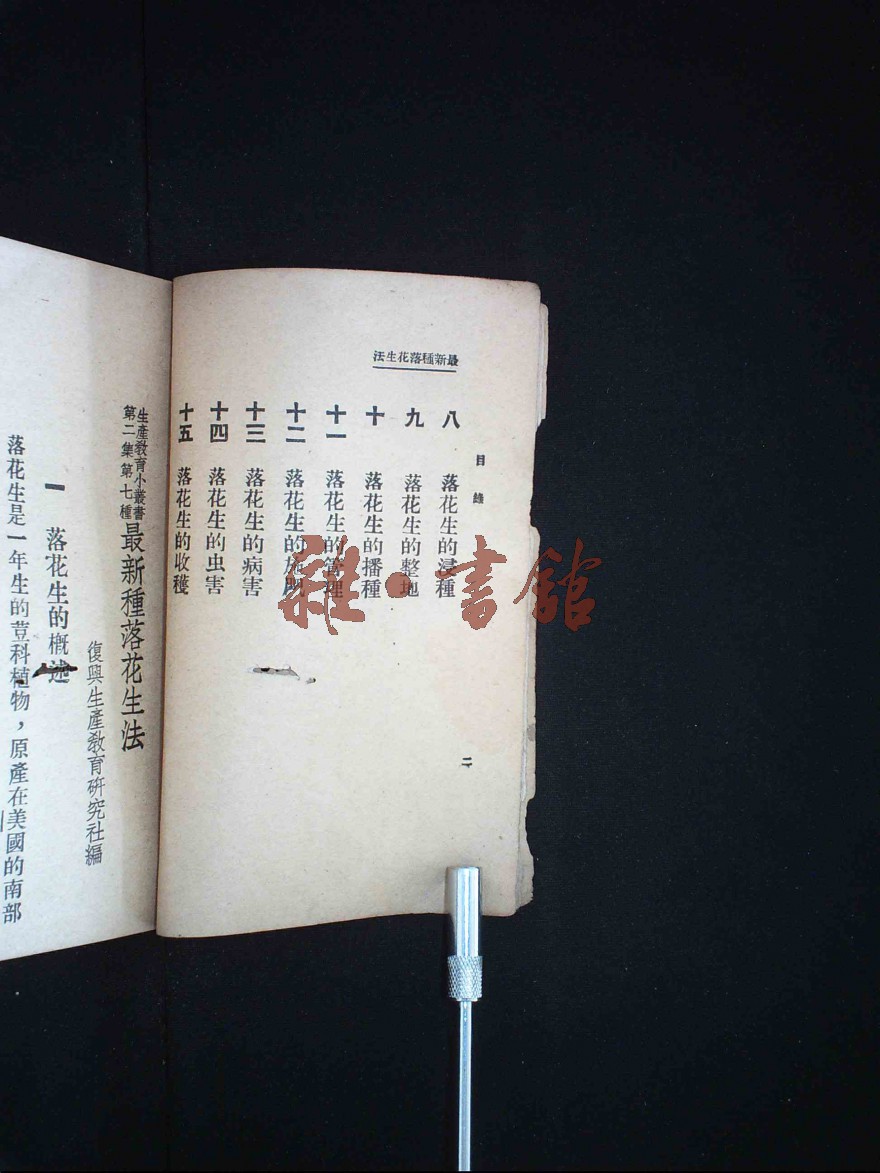 最新種落花生法
目錄
八 落花生的浸種
九 落花生的整地
十 落花生的播種
十一 落花生的管理
十二 落花生的施肥
十三 落花生的病害
十四 落花生的虫害
十五 落花生的收穫
二
生產教育小叢書
第二集第七種
最新種落花生法
復興生產教育研究社編
一 落花生的概述
落花生是一年生的荳科植物，原產在美國的南部
雜·書館